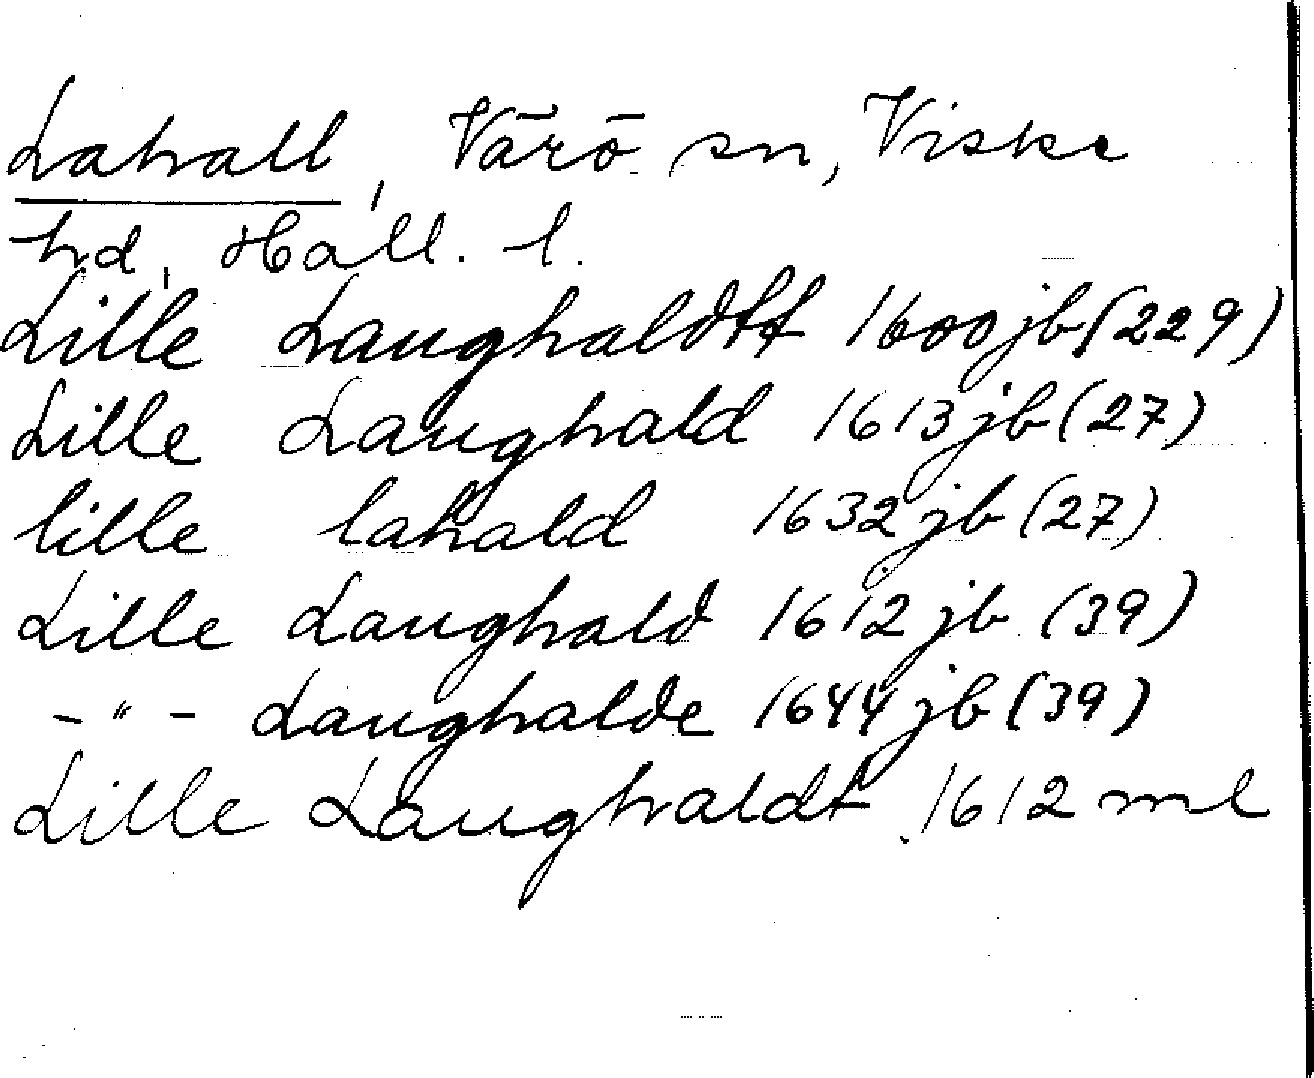 Lahall, Värö sn, Viske
hd, Hall. l.
Lille Laughaldtt 1600 jb (229)
Lille Laughald 1613 jb (27)
lille lahald 1632 jb (27)
Lille Laughald 1612 jb (39)
-"- Laughalde 1644 jb (39)
Lille Laughaldt 1612 ml